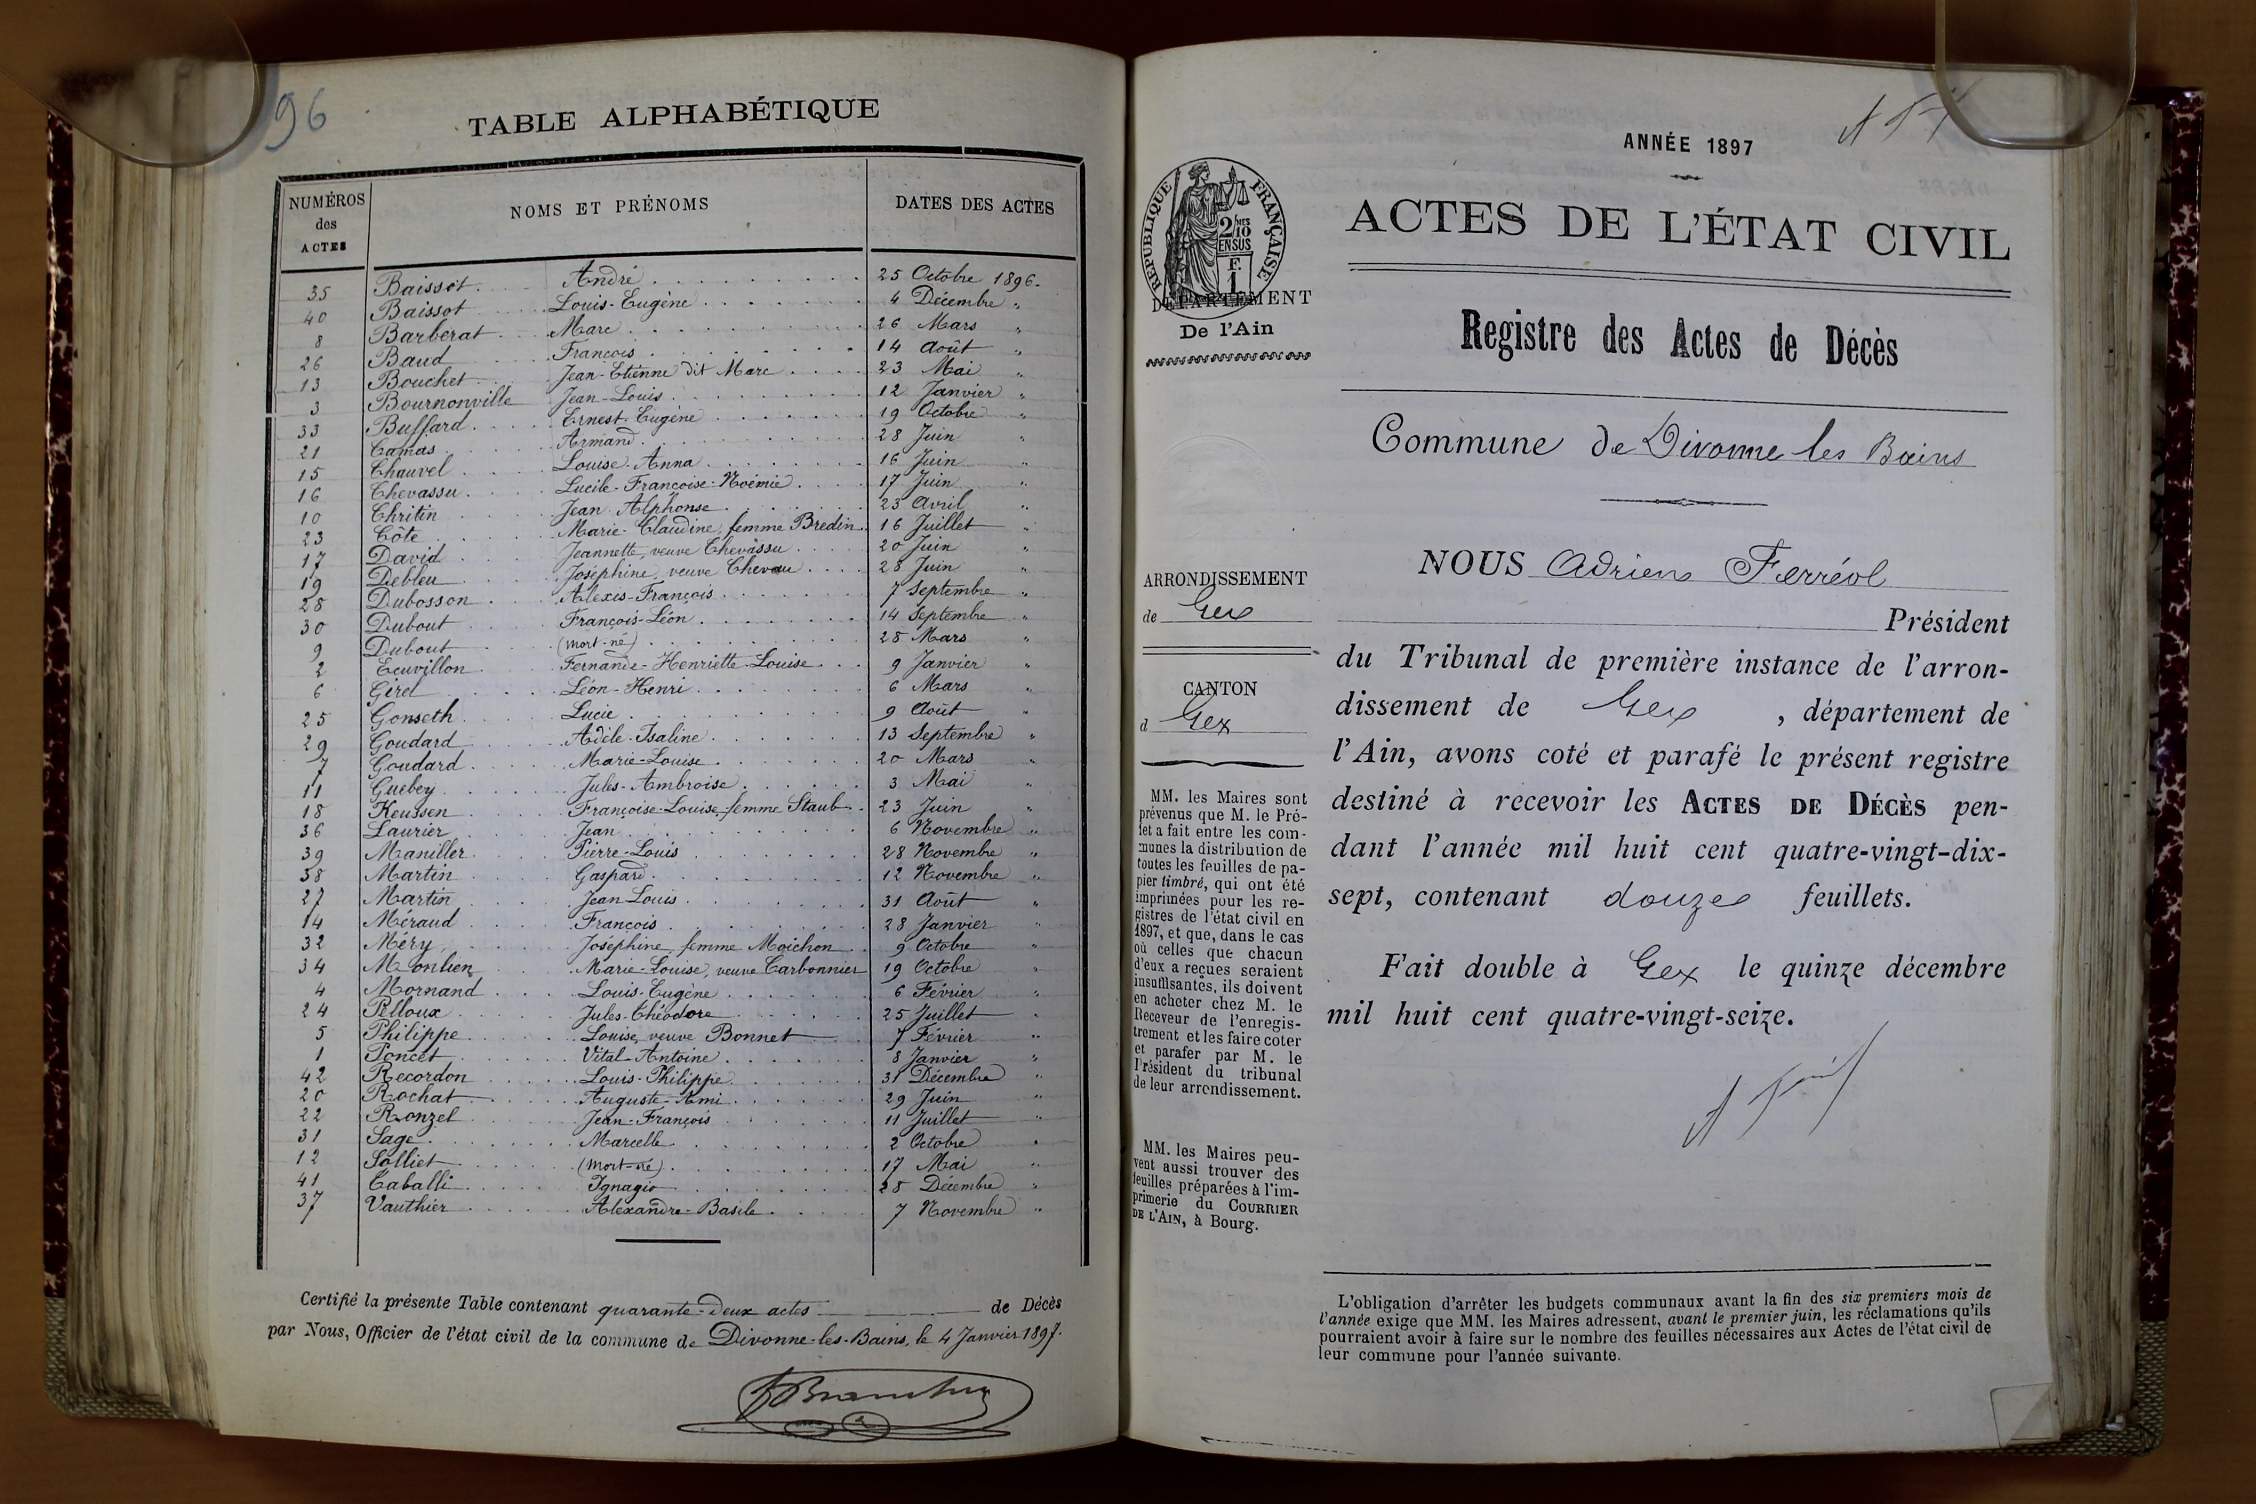 96
TABLE ALPHABÉTIQUE
NUMÉROS des ACTES NOMS ET PRÉNOMS DATES DES ACTES
35 Baissot André 25 Octobre 1896
40 Baissot Louis-Eugène 4 Décembre "
8 Barberat Marc 26 Mars "
26 Baud François 14 Août "
13 Bouchet Jean-Etienne dit Marc 23 Mai "
3 Bournonville Jean-Louis 12 Janvier "
33 Buffard Ernest-Eugène 19 Octobre "
21 Camas Armand 28 Juin "
15 Chauvel Louise-Anna 16 Juin "
16 Chevassu Lucile-Françoise-Noémie 17 Juin "
10 Chritin Jean Alphonse 23 Avril "
23 Côte Marie-Claudine, femme Bredin 16 Juillet "
17 David Jeannette, veuve Chevassu 20 Juin "
19 Debleu Joséphine, veuve 28 Juin "
28 Dubosson Alexis-François 7 Septembre "
30 Dubout François-Léon 14 Septembre "
9 Dubout (mort-né) 28 Mars "
2 Ecuvillon Fernande-Henriette-Louise 9 Janvier "
6 Girel Léon-Henri 6 Mars "
25 Gonseth Lucie 9 Août "
29 Goudard Adèle-Isaline 13 Septembre "
7 Goudard Marie-Louise 20 Mars "
11 Guebey Jules-Ambroise 3 Mai "
18 Keussen Françoise-Louise, femme Staub 23 Juin "
36 Laurier Jean 6 Novembre "
39 Maniller Pierre-Louis 28 Novembre "
38 Martin Gaspard 12 Novembre "
27 Martin Jean Louis 31 Août "
14 Méraud François 28 Janvier "
32 Méry Joséphine, femme Moichon 9 Octobre "
34 Marie-Louise, veuve Carbonnier 19 Octobre "
4 Mornand Louis-Eugène 6 Février "
24 Pelloux Jules-Théodore 25 Juillet "
5 Philippe Louise, veuve Bonnet 7 Février "
1 Poncet Vital-Antoine 8 Janvier "
42 Recordon Louis-Philippe 31 Décembre "
20 Rochat Auguste-Ami 29 Juin "
22 Ronzel Jean-François 11 Juillet "
31 Sage Marcelle 2 Octobre "
12 Solliet (Mort-né) 17 Mai "
41 Caballi Ignazio 28 Décembre "
37 Vauthier Alexandre-Basile 7 Novembre "
Certifié la présente Table contenant quarante-deux actes de Décès
par Nous, Officier de l'état civil de la commune de Divonne-les-Bains, le 4 Janvier 1897.
ANNÉE 1897
RÉPUBLIQUE FRANÇAISE
2/10 EN SUS
F. 1
ACTES DE L'ÉTAT CIVIL
DÉPARTEMENT
De l'Ain
Registre des Actes de Décès
Commune de Divonne les Bains
ARRONDISSEMENT
de Gex
CANTON
d Gex
MM. les Maires sont
prévenus que M. le Pré-
fet a fait entre les com-
munes la distribution de
toutes les feuilles de pa-
pier timbré, qui ont été
imprimées pour les re-
gistres de l'état civil en
1897, et que, dans le cas
où celles que chacun
d'eux a reçues seraient
insuffisantes, ils doivent
en acheter chez M. le
Receveur de l'enregis-
trement et les faire coter
et parafer par M. le
Président du tribunal
de leur arrondissement.
MM. les Maires peu-
vent aussi trouver des
feuilles préparées à l'im-
primerie du COURRIER
DE L'AIN, à Bourg.
NOUS Adrien Ferréol
Président
du Tribunal de première instance de l'arron-
dissement de Gex, département de
l'Ain, avons coté et parafé le présent registre
destiné à recevoir les ACTES DE DÉCÈS pen-
dant l'année mil huit cent quatre-vingt-dix-
sept, contenant douze feuillets.
Fait double à Gex le quinze décembre
mil huit cent quatre-vingt-seize.
L'obligation d'arrêter les budgets communaux avant la fin des six premiers mois de
l'année exige que MM. les Maires adressent, avant le premier juin, les réclamations qu'ils
pourraient avoir à faire sur le nombre des feuilles nécessaires aux Actes de l'état civil de
leur commune pour l'année suivante.